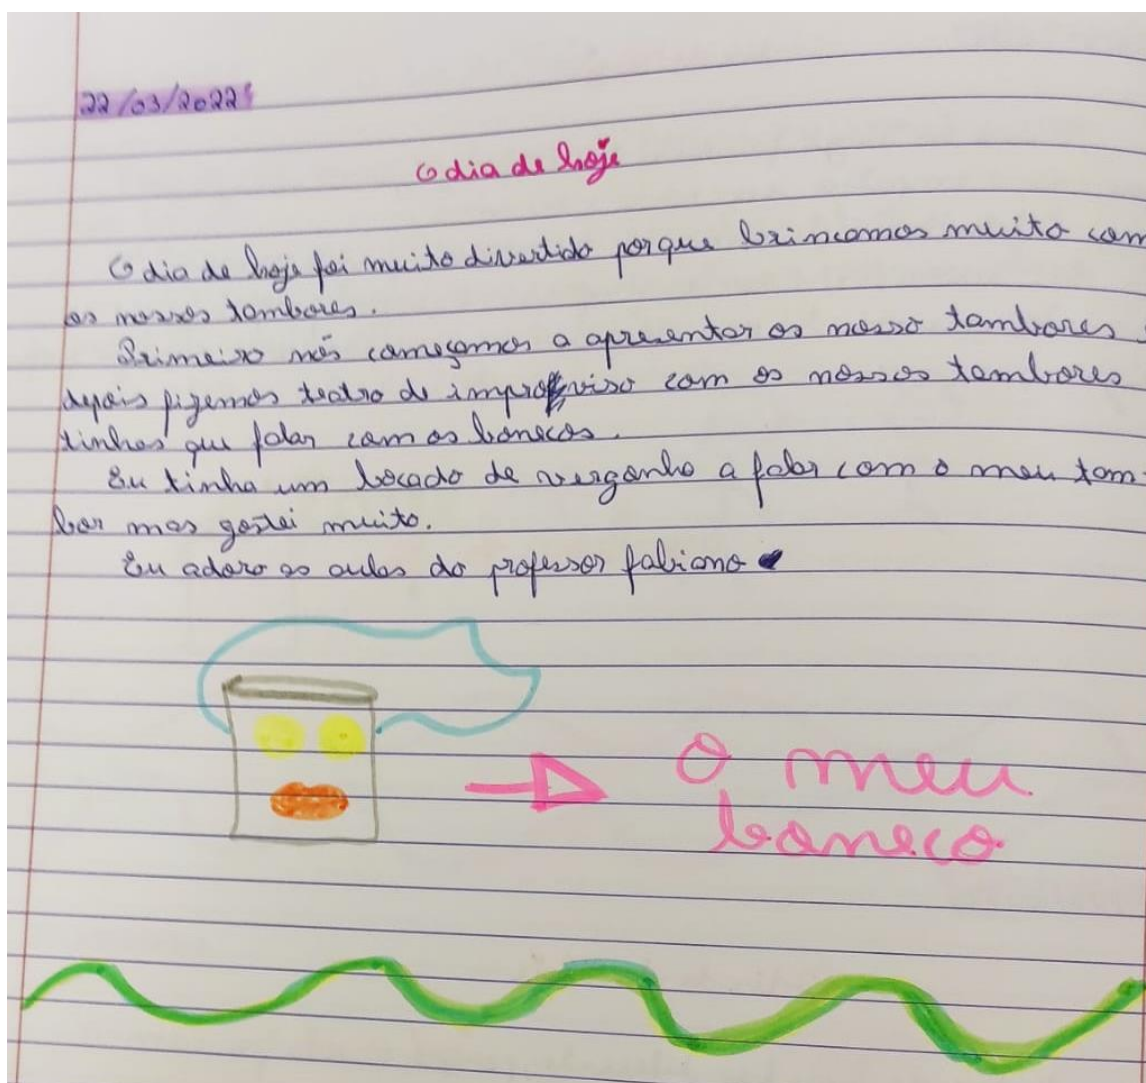 22/03/2022
O dia de hoje
O dia de hoje foi muito divertido porque brincamos muito com
os nossos tambores.
Primeiro nós começamos a apresentar os nosso tambores.
depois fizemos teatro de improviso com os nossos tambores
tinhas que falar com os bonecos.
Eu tinha um bocado de verganha a falar com o meu tam-
bor mas gostei muito.
Eu adoro as aulas do professor fabiano
O meu
boneco